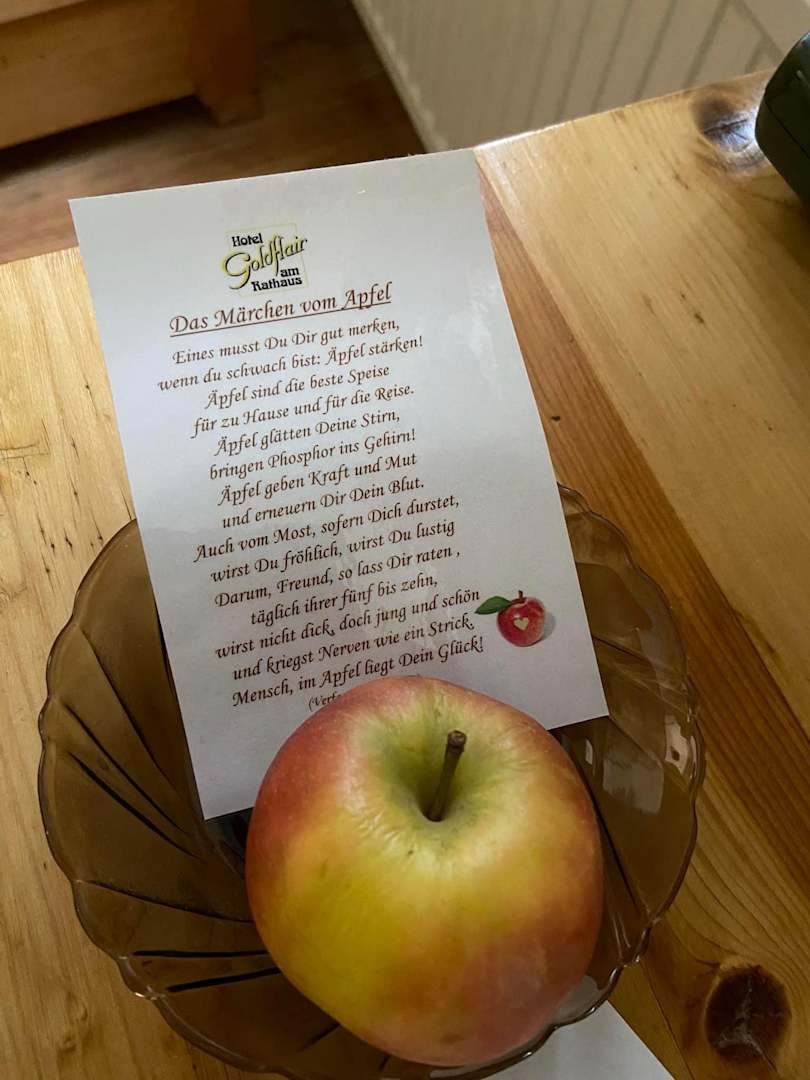 Hotel
Goldflair
am
Rathaus
Das Märchen vom Apfel
Eines musst Du Dir gut merken,
wenn du schwach bist: Äpfel stärken!
Äpfel sind die beste Speise
für zu Hause und für die Reise.
Äpfel glätten Deine Stirn,
bringen Phosphor ins Gehirn!
Äpfel geben Kraft und Mut
und erneuern Dir Dein Blut.
Auch vom Most, sofern Dich durstet,
wirst Du fröhlich, wirst Du lustig
Darum, Freund, so lass Dir raten ,
täglich ihrer fünf bis zehn,
wirst nicht dick, doch jung und schön
und kriegst Nerven wie ein Strick.
Mensch, im Apfel liegt Dein Glück!